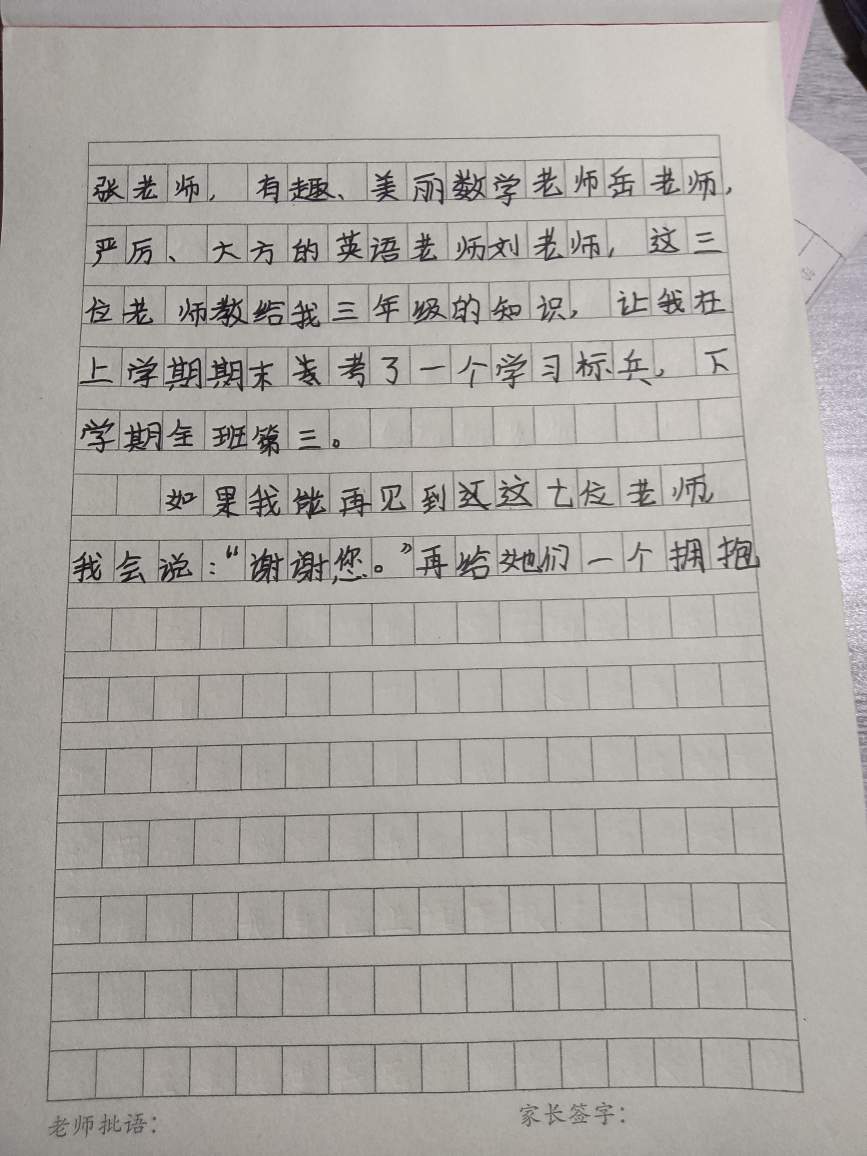 张老师，有趣、美丽数学老师岳老师，
严厉、大方的英语老师刘老师，这三
位老师教给我三年级的知识，让我在
上学期期末考了一个学习标兵，下
学期全班第三。
如果我能再见到这七位老师
我会说：“谢谢您。”再给她们一个拥抱
老师批语：
家长签字：